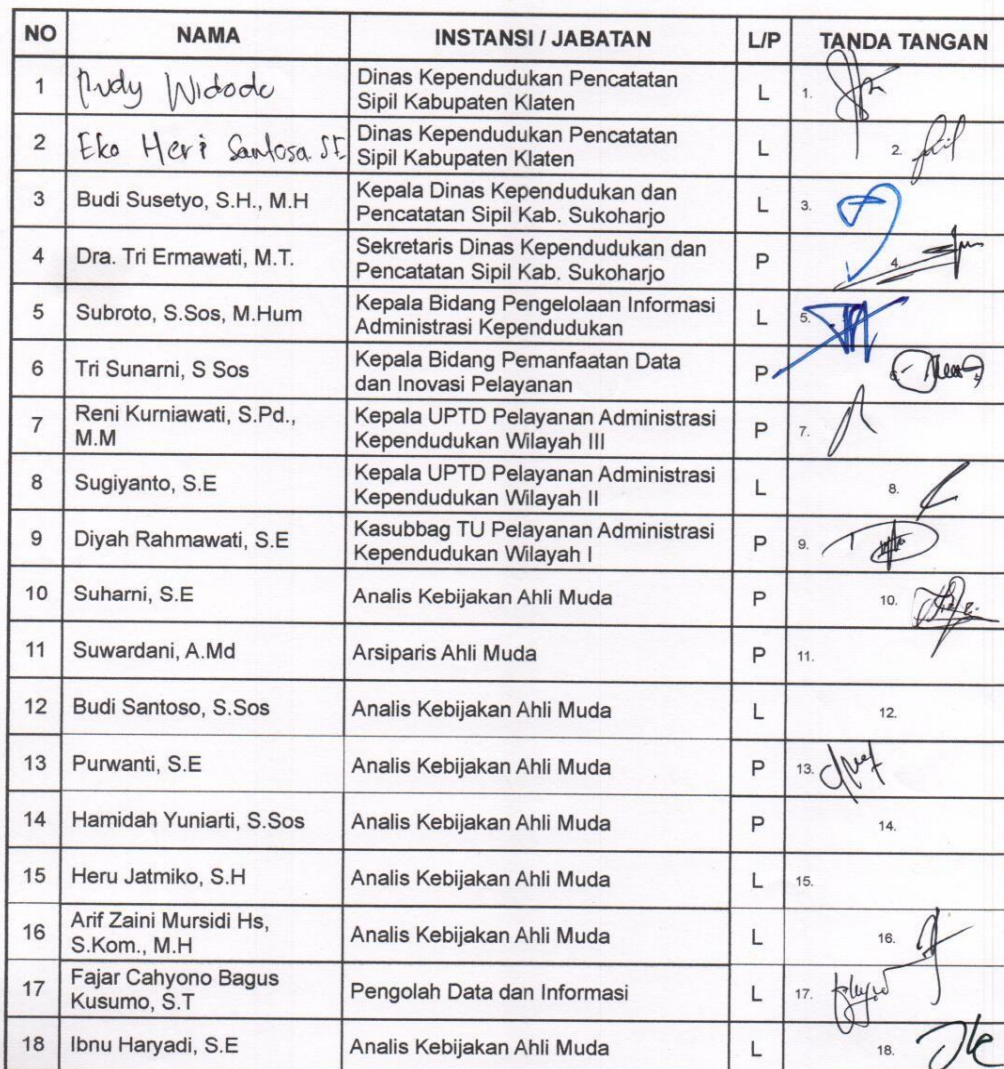 NO NAMA INSTANSI / JABATAN L/P TANDA TANGAN
1 Rudy Widodo Dinas Kependudukan Pencatatan Sipil Kabupaten Klaten L 1.
2 Eko Heri Santosa SE Dinas Kependudukan Pencatatan Sipil Kabupaten Klaten L 2.
3 Budi Susetyo, S.H., M.H Kepala Dinas Kependudukan dan Pencatatan Sipil Kab. Sukoharjo L 3.
4 Dra. Tri Ermawati, M.T. Sekretaris Dinas Kependudukan dan Pencatatan Sipil Kab. Sukoharjo P 4.
5 Subroto, S.Sos, M.Hum Kepala Bidang Pengelolaan Informasi Administrasi Kependudukan L 5.
6 Tri Sunarni, S Sos Kepala Bidang Pemanfaatan Data dan Inovasi Pelayanan P 6.
7 Reni Kurniawati, S.Pd., M.M Kepala UPTD Pelayanan Administrasi Kependudukan Wilayah III P 7.
8 Sugiyanto, S.E Kepala UPTD Pelayanan Administrasi Kependudukan Wilayah II L 8.
9 Diyah Rahmawati, S.E Kasubbag TU Pelayanan Administrasi Kependudukan Wilayah I P 9.
10 Suharni, S.E Analis Kebijakan Ahli Muda P 10.
11 Suwardani, A.Md Arsiparis Ahli Muda P 11.
12 Budi Santoso, S.Sos Analis Kebijakan Ahli Muda L 12.
13 Purwanti, S.E Analis Kebijakan Ahli Muda P 13.
14 Hamidah Yuniarti, S.Sos Analis Kebijakan Ahli Muda P 14.
15 Heru Jatmiko, S.H Analis Kebijakan Ahli Muda L 15.
16 Arif Zaini Mursidi Hs, S.Kom., M.H Analis Kebijakan Ahli Muda L 16.
17 Fajar Cahyono Bagus Kusumo, S.T Pengolah Data dan Informasi L 17.
18 Ibnu Haryadi, S.E Analis Kebijakan Ahli Muda L 18.